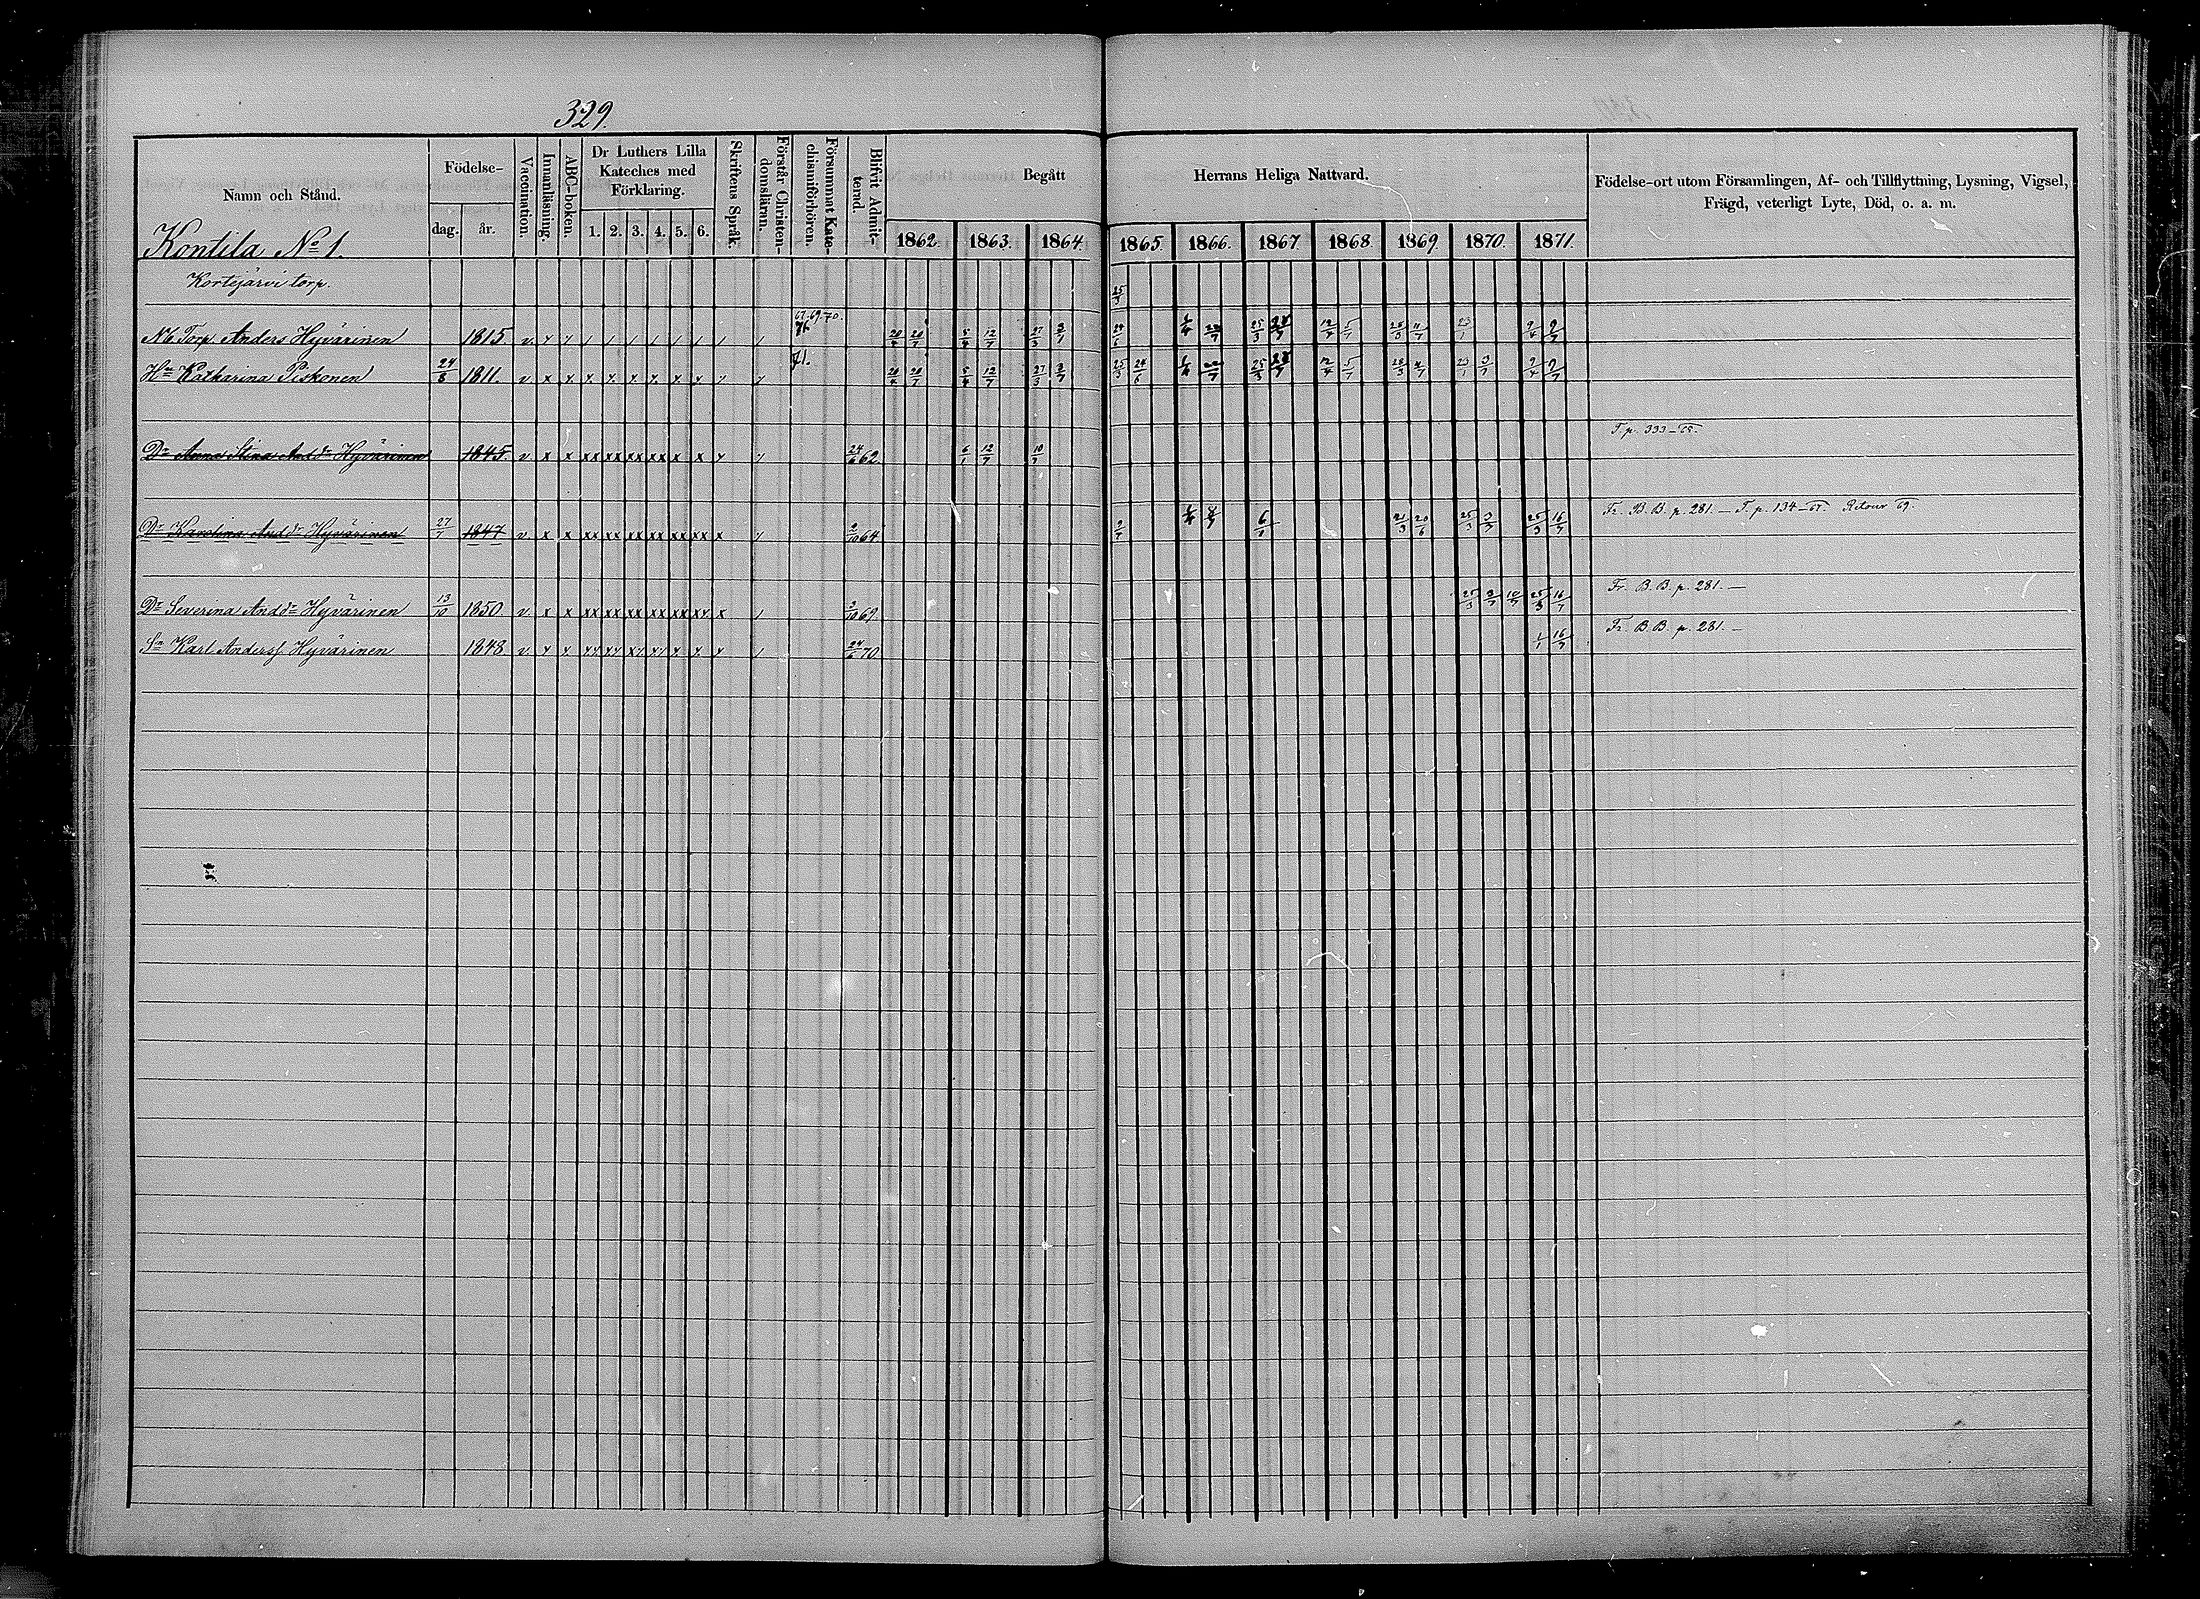 329.
Namn och Stånd.
Födelse-
dag.
år.
Vaccination.
Innanläsning.
ABC-boken.
Dr Luthers Lilla
Kateches med
Förklaring.
1. 2. 3. 4. 5. 6.
Skriftens Språk.
Förstår Christen-
domsläran.
Försummat Kate-
chismiförhören.
Blifvit Admit-
terad.
Begått Herrans Heliga Nattvard.
1862. 1863. 1864. 1865. 1866. 1867. 1868. 1869. 1870. 1871.
Födelse-ort utom Församlingen, Af- och Tillflyttning, Lysning, Vigsel,
Frägd, veterligt Lyte, Död, o. a. m.
Kontila No 1.
Kortejärvi torp. 25/3
67. 69. 70.
Torp. Anders Hyvärinen 1815. v 20/4 20/7 5/4 12/7 27/3 3/7 24/6 25/3 12/4 5/7 28/3 4/7 23/1 9/4 9/7
71.
Hu Katharina Piskonen 24/8 1811. v x x x x x x x x 20/4 20/7 5/4 12/7 27/3 3/7 25/3 24/6 25/3 12/4 5/7 28/3 4/7 23/1 3/7 9/4 9/7
T. p. 333-65.
Dr Anna Stina Andd:r Hyvärinen 1845. v x x xx xx xx xx x x 24/6 62. 6/1 12/7 10/7
Fr. B. B. p. 281. — T. p. 134-67. Retour 69.
Dr Karolina Andd:r Hyvärinen 27/7 1847 v x x xx xx xx xx xx xx x 2/10 64 2/7 6/1 21/3 20/6 25/3 3/7 25/3 16/7
Fr. B. B. p. 281. —
Dr Severina Andd:r Hyvärinen 13/10 1850 v x x xx xx xx xx xx xx x 3/10 69. 25/3 3/7 10/7 25/3 16/7
Fr. B. B. p. 281. —
Sn Karl Anderss Hyvärinen 1848 v x x 24/6 70 1/1 16/7